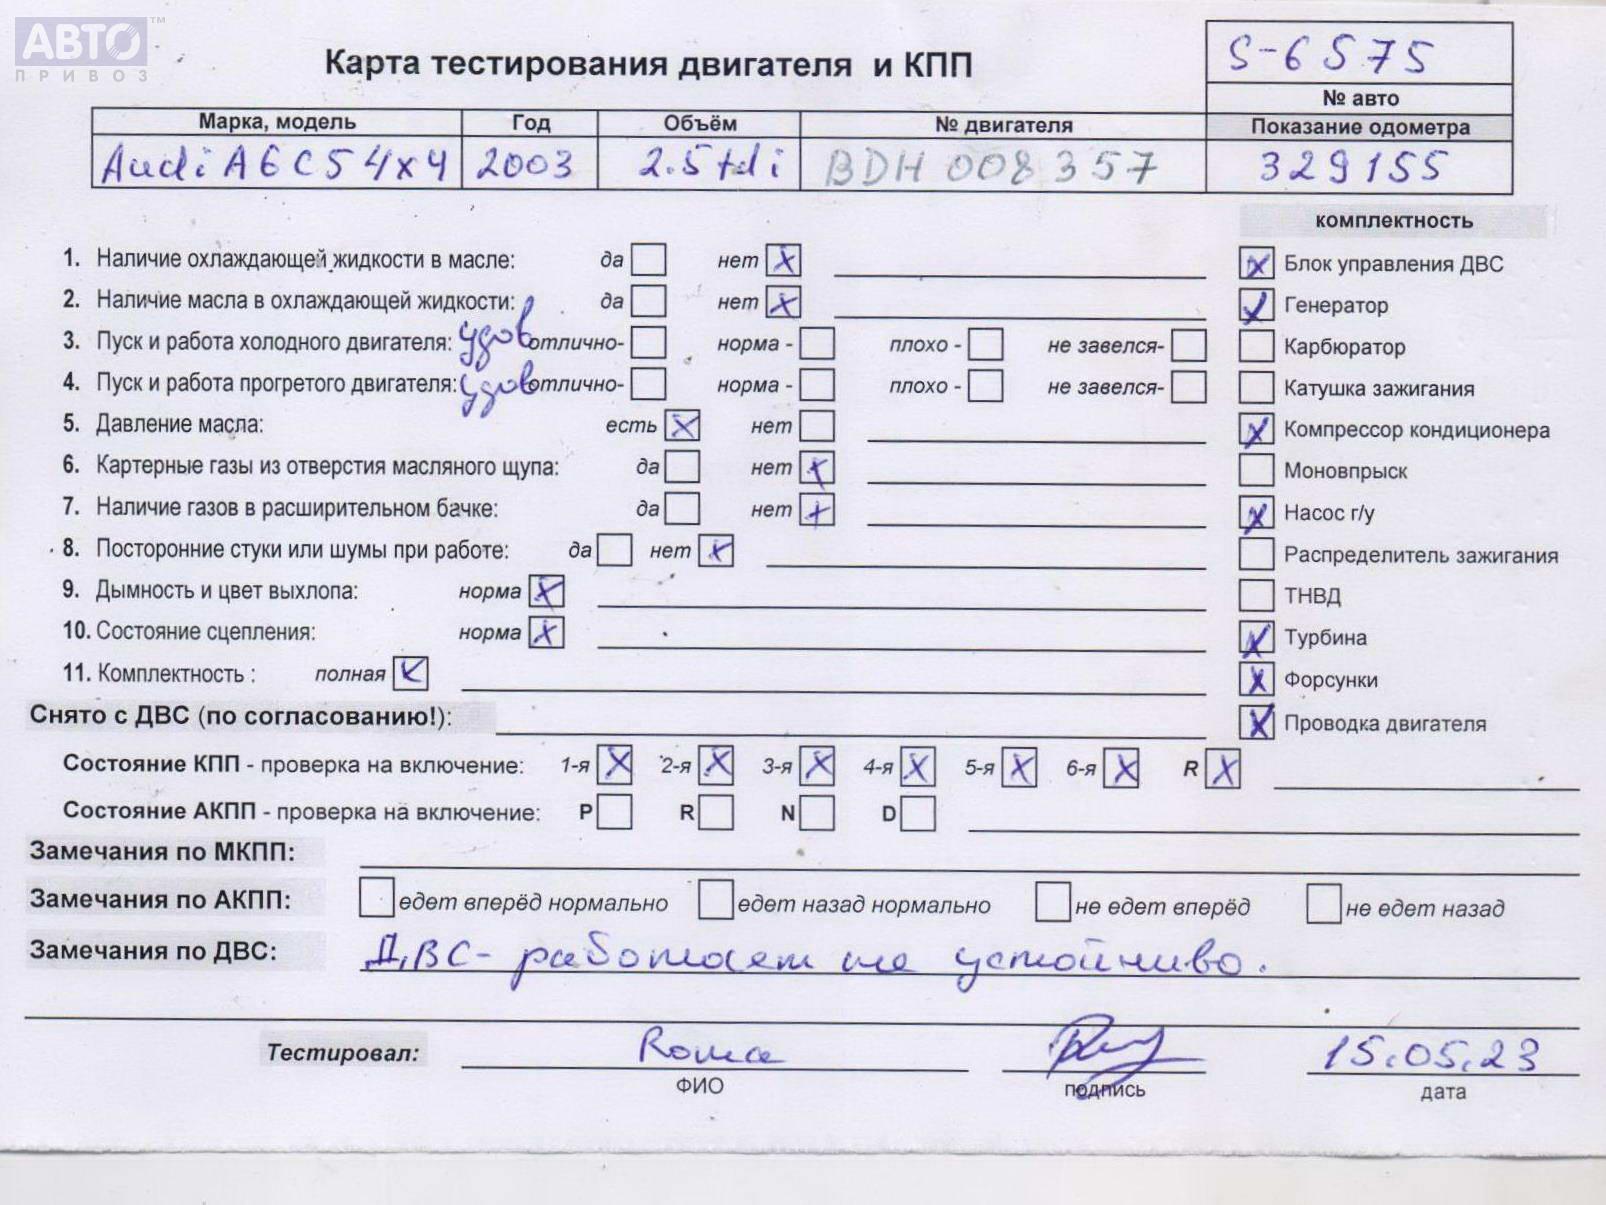 АВТО™
ПРИВОЗ
Карта тестирования двигателя и КПП
S-6575
№ авто
Марка, модель Год Объём № двигателя Показание одометра
Audi A6C5 4x4 2003 2.5 tdi BDH 008357 329155
комплектность
1. Наличие охлаждающей жидкости в масле: да нет x
2. Наличие масла в охлаждающей жидкости: да нет x
3. Пуск и работа холодного двигателя: удов отлично- норма - плохо - не завелся-
4. Пуск и работа прогретого двигателя: удов отлично- норма - плохо - не завелся-
5. Давление масла: есть x нет
6. Картерные газы из отверстия масляного щупа: да нет x
7. Наличие газов в расширительном бачке: да нет x
8. Посторонние стуки или шумы при работе: да нет x
9. Дымность и цвет выхлопа: норма x
10. Состояние сцепления: норма x
11. Комплектность : полная x
Блок управления ДВС
Генератор
Карбюратор
Катушка зажигания
Компрессор кондиционера
Моновпрыск
Насос г/у
Распределитель зажигания
ТНВД
Турбина
Форсунки
Проводка двигателя
Снято с ДВС (по согласованию!):
Состояние КПП - проверка на включение: 1-я x 2-я x 3-я x 4-я x 5-я x 6-я x R x
Состояние АКПП - проверка на включение: P R N D
Замечания по МКПП:
Замечания по АКПП: едет вперёд нормально едет назад нормально не едет вперёд не едет назад
Замечания по ДВС: ДВС - работает не устойчиво.
Тестировал: Рома 15.05.23
ФИО подпись дата